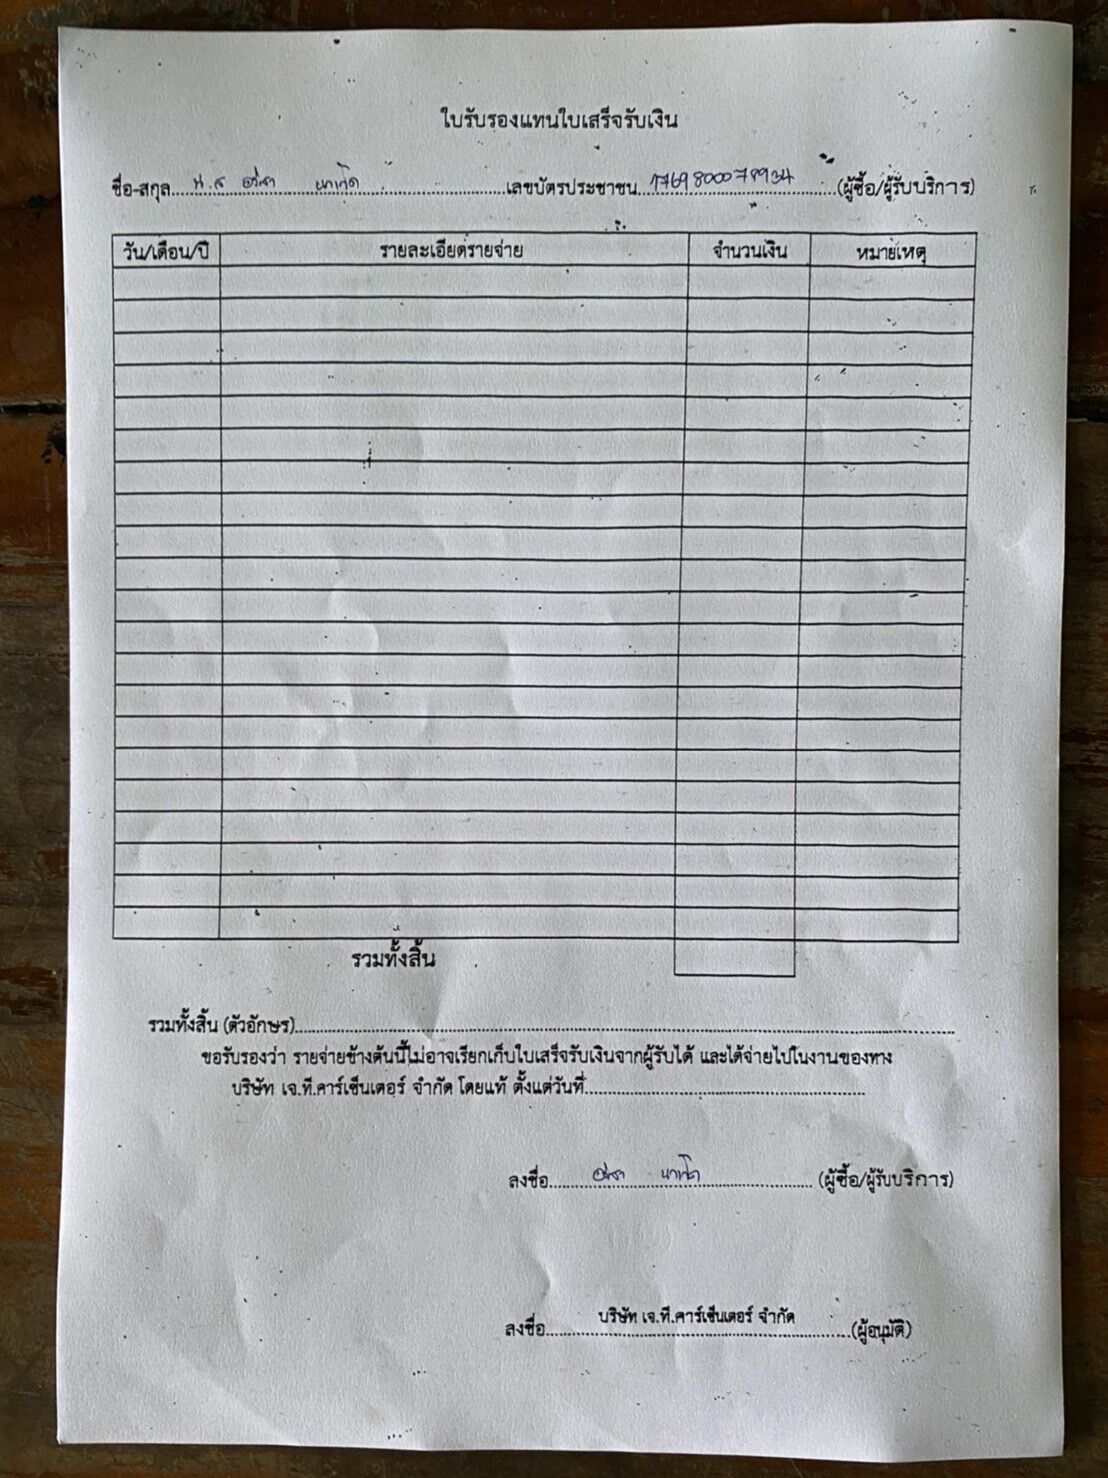 ใบรับรองแทนใบเสร็จรับเงิน
ชื่อ-สกุล น.ส เลขบัตรประชาชน (ผู้ซื้อ/ผู้รับบริการ)
วัน/เดือน/ปี รายละเอียดรายจ่าย จำนวนเงิน หมายเหตุ
รวมทั้งสิ้น
รวมทั้งสิ้น (ตัวอักษร)
ขอรับรองว่า รายจ่ายข้างต้นนี้ไม่อาจเรียกเก็บใบเสร็จรับเงินจากผู้รับได้ และได้จ่ายไปในงานของทาง
บริษัท เจ.ที.คาร์เซ็นเตอร์ จำกัด โดยแท้ ตั้งแต่วันที่
ลงชื่อ (ผู้ซื้อ/ผู้รับบริการ)
บริษัท เจ.ที.คาร์เซ็นเตอร์ จำกัด
ลงชื่อ (ผู้อนุมัติ)